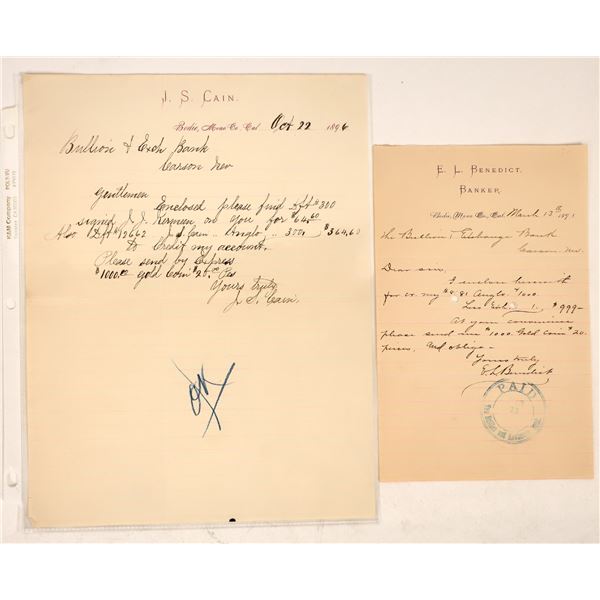 J. S. CAIN.
Bodie, Mono Co. Cal. Oct 22 1896
Bullion & Exch Bank
Carson Nev
Gentlemen
Enclosed please find Dft #300
signd J. J. Kernen on you for $64.60
Also Dft #12662 J. S. Cain Anglo 300. $364.60
to Credit my account.
Please send by Express
$1000.00 gold Coin $20.00 Pcs
Yours truly
J. S. Cain.
OK
E. L. BENEDICT.
BANKER.
Bodie, Mono Co., Cal. March 13th 1891
The Bullion & Exchange Bank
Carson Nev.
Dear Sirs,
I enclose herewith
for cr. my # 81 Anglo $1000.
Less 1. $999–
At your convenience
please send me $1000. Gold Coin $20.
pieces. And oblige –
Yours truly
E. L. Benedict
PAID
The Bullion and Exchange Bank
K&M Company